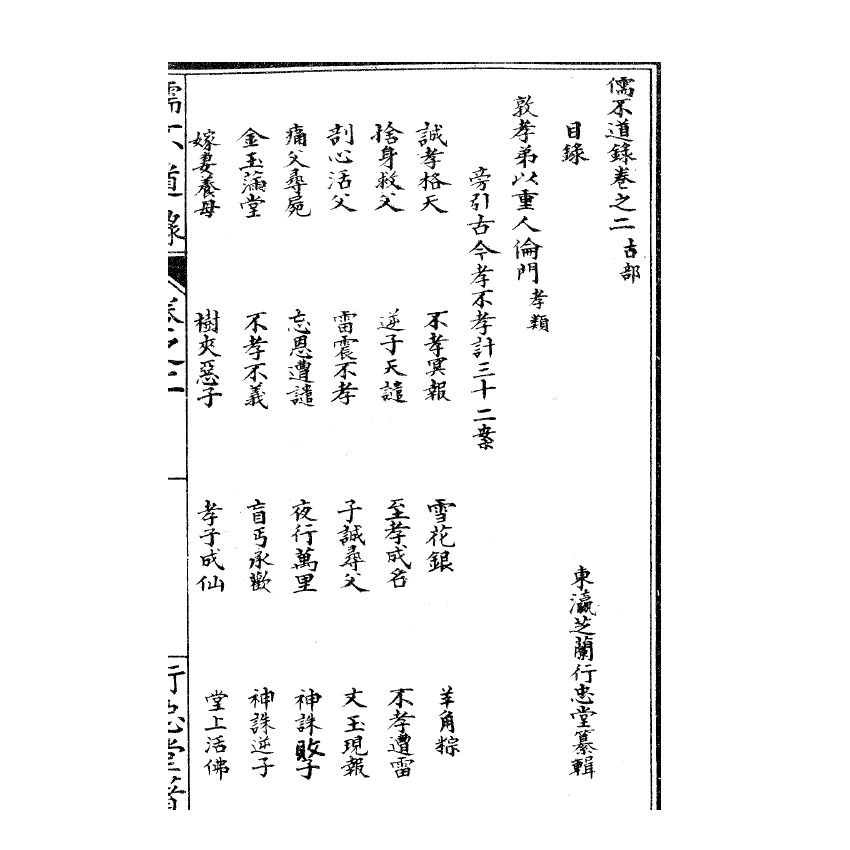 儒不道錄卷之二 古部
目錄
東瀛芝蘭行忠堂纂輯
敦孝弟以重人倫門 孝類
旁引古今孝不孝計三十二案
誠孝格天 不孝冥報 雪花銀 羊角粽
捨身救父 逆子天譴 至孝成名 不孝遭雷
剖心活父 雷震不孝 子誠尋父 文玉現報
痛父尋屍 忘恩遭譴 夜行萬里 神誅敗子
金玉滿堂 不孝不義 盲丐承歡 神誅逆子
嫁妻養母 樹夾惡子 孝子成仙 堂上活佛
儒不道錄 卷之二